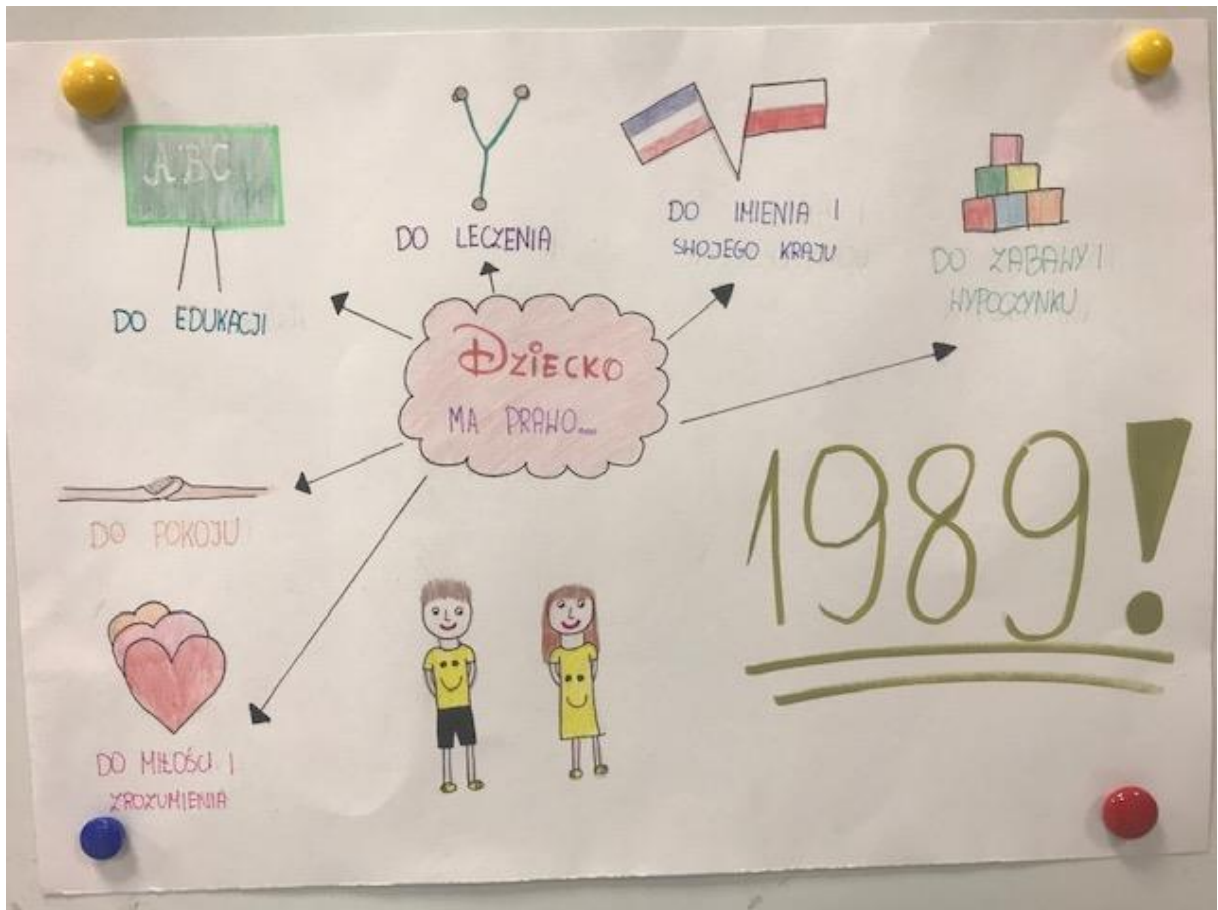 ABC
DO EDUKACJI
DO LECZENIA
DO IMIENIA I
SWOJEGO KRAJU
DO ZABAWY I
WYPOCZYNKU
DZIECKO
MA PRAWO...
DO POKOJU
1989!
DO MIŁOŚCI I
ZROZUMIENIA